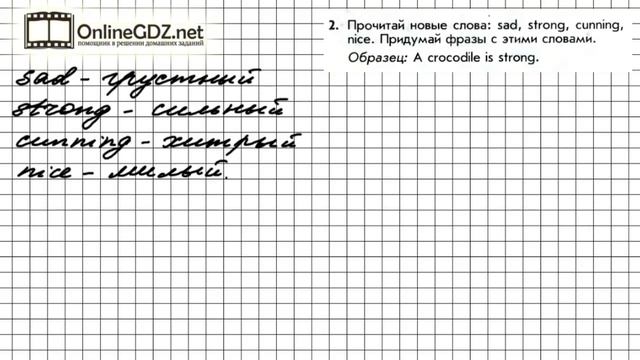 OnlineGDZ.net
помощник в решении домашних заданий
2. Прочитай новые слова: sad, strong, cunning,
nice. Придумай фразы с этими словами.
Образец: A crocodile is strong.
sad - грустный
strong - сильный
cunning - хитрый
nice - милый.